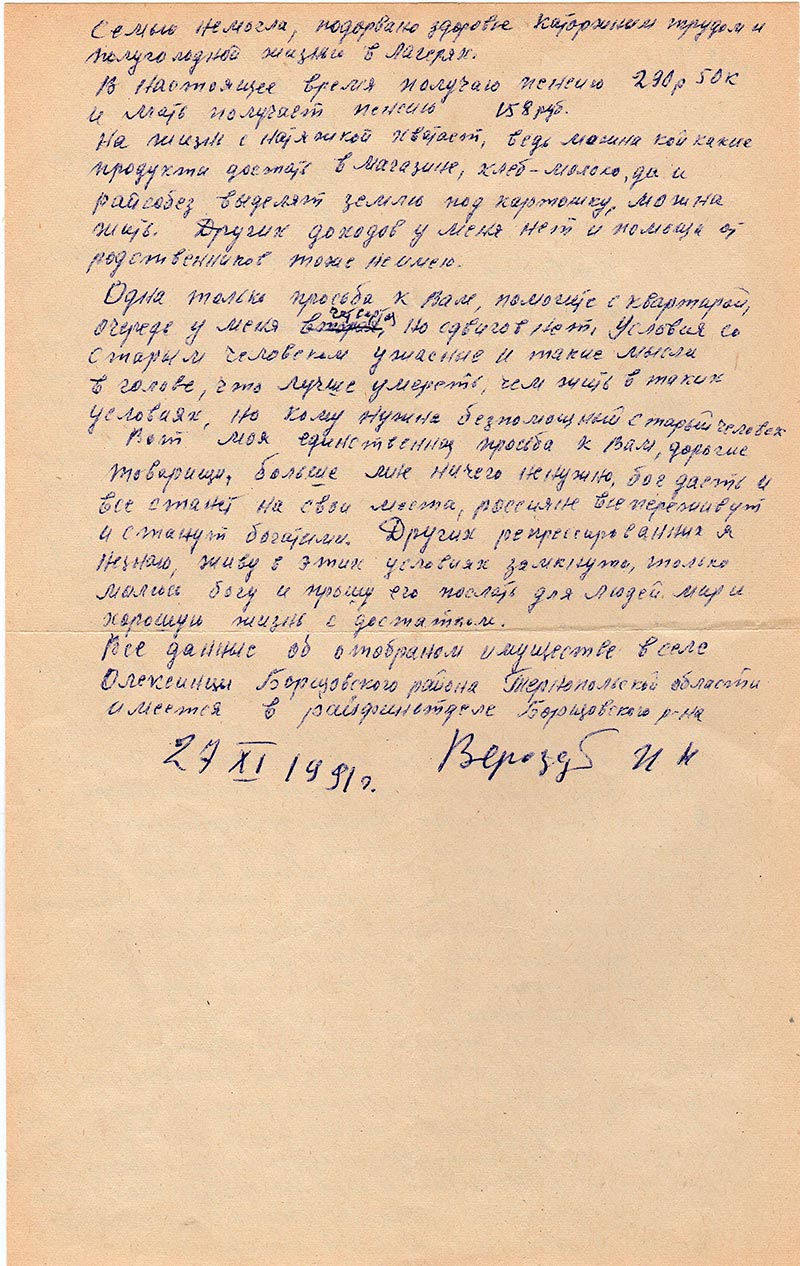 семью немогла, подорвано здоровье каторжным трудом и
полуголодной жизнью в лагерях.
В настоящее время получаю пенсию 290р 50к
и мать получает пенсию 158 руб.
На жизнь с натяжкой хватает, ведь можна кой какие
продукты достать в магазине, хлеб-молоко, да и
райсобез выделят землю под картошку, можна
жить. Других доходов у меня нет и помощи от
родственников тоже неимею.
Одна только просьба к Вам, помогите с квартирой,
очередь у меня вторая, но сдвигов нет. Условия со
старым человеком ужасные и такие мысли
в голове, что лучше умереть, чем жить в таких
условиях, но кому нужна безпомощный старый человек
Вот моя единственная просьба к Вам, дорогие
товарищи, больше мне ничего ненужно, бог дасть и
все станет на свои места, россияне все переживут
и станут богатыми. Других репрессированных я
незнаю, живу в этих условиях замкнуто, только
молюсь богу и прошу его послать для людей мир и
хорошую жизнь с достатком.
Все данные об отобраном имуществе в селе
Олексинцы Борщовского района Тернопольской области
имеется в райфинотделе Борщовского р-на
27 XI 1991г. Верозуб И Н